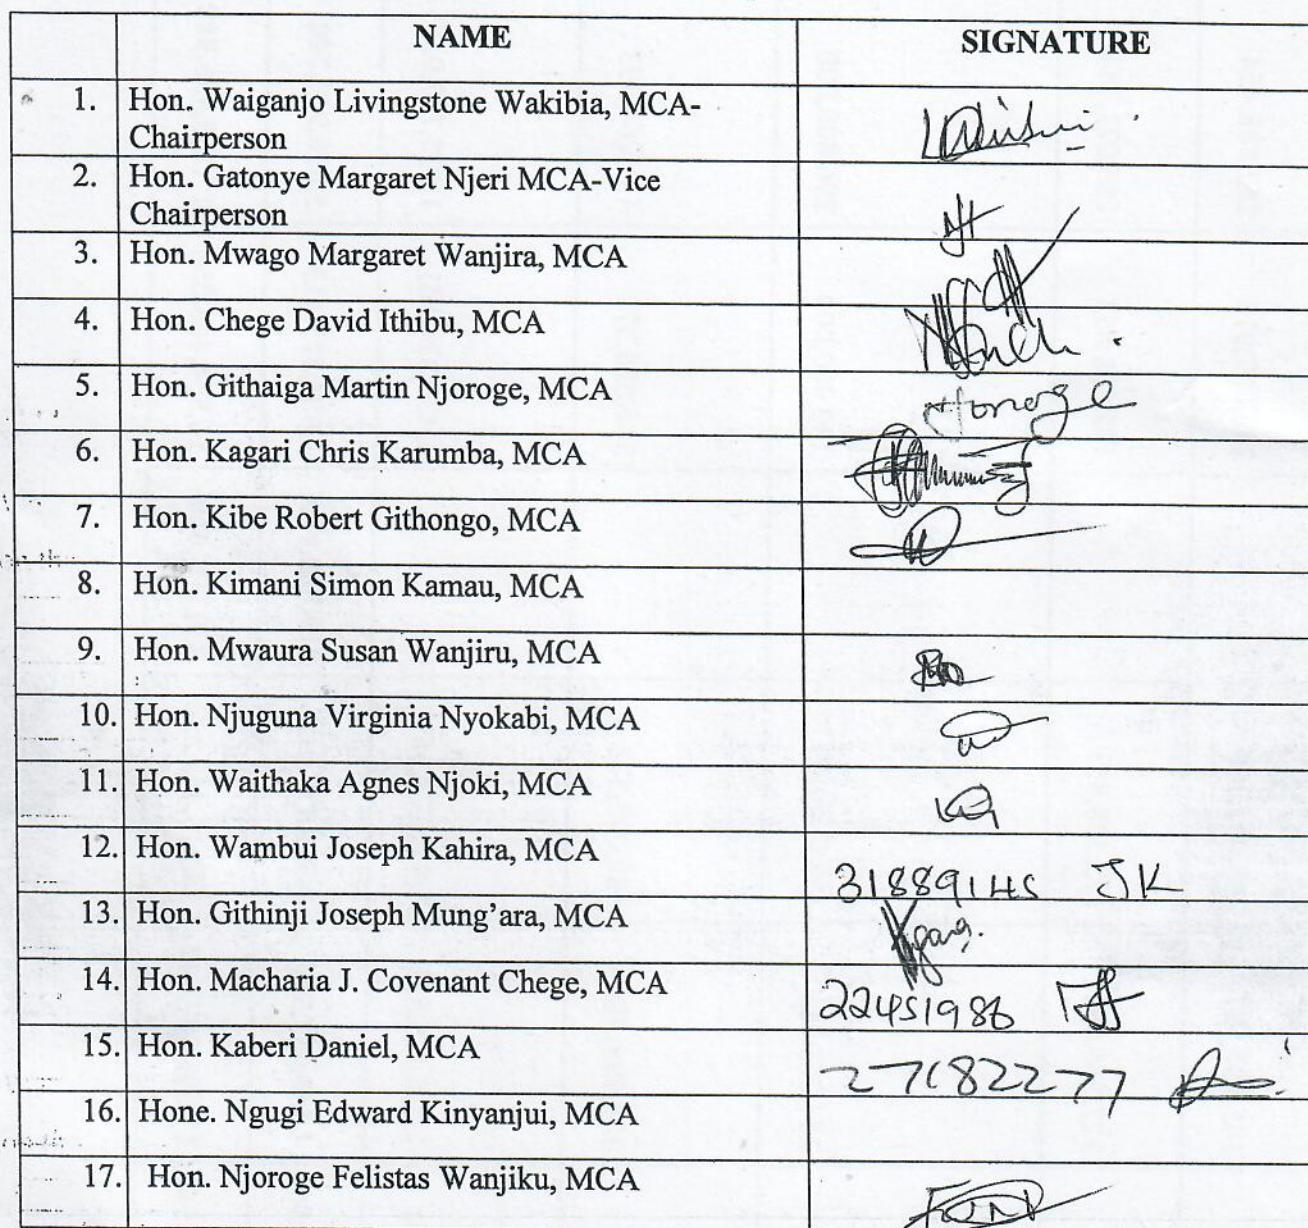 NAME SIGNATURE
1. Hon. Waiganjo Livingstone Wakibia, MCA-
Chairperson
2. Hon. Gatonye Margaret Njeri MCA-Vice
Chairperson
3. Hon. Mwago Margaret Wanjira, MCA
4. Hon. Chege David Ithibu, MCA
5. Hon. Githaiga Martin Njoroge, MCA Njoroge
6. Hon. Kagari Chris Karumba, MCA
7. Hon. Kibe Robert Githongo, MCA
8. Hon. Kimani Simon Kamau, MCA
9. Hon. Mwaura Susan Wanjiru, MCA
10. Hon. Njuguna Virginia Nyokabi, MCA
11. Hon. Waithaka Agnes Njoki, MCA
12. Hon. Wambui Joseph Kahira, MCA
JK
13. Hon. Githinji Joseph Mung'ara, MCA
14. Hon. Macharia J. Covenant Chege, MCA
22451986
15. Hon. Kaberi Daniel, MCA
27182277
16. Hone. Ngugi Edward Kinyanjui, MCA
17. Hon. Njoroge Felistas Wanjiku, MCA